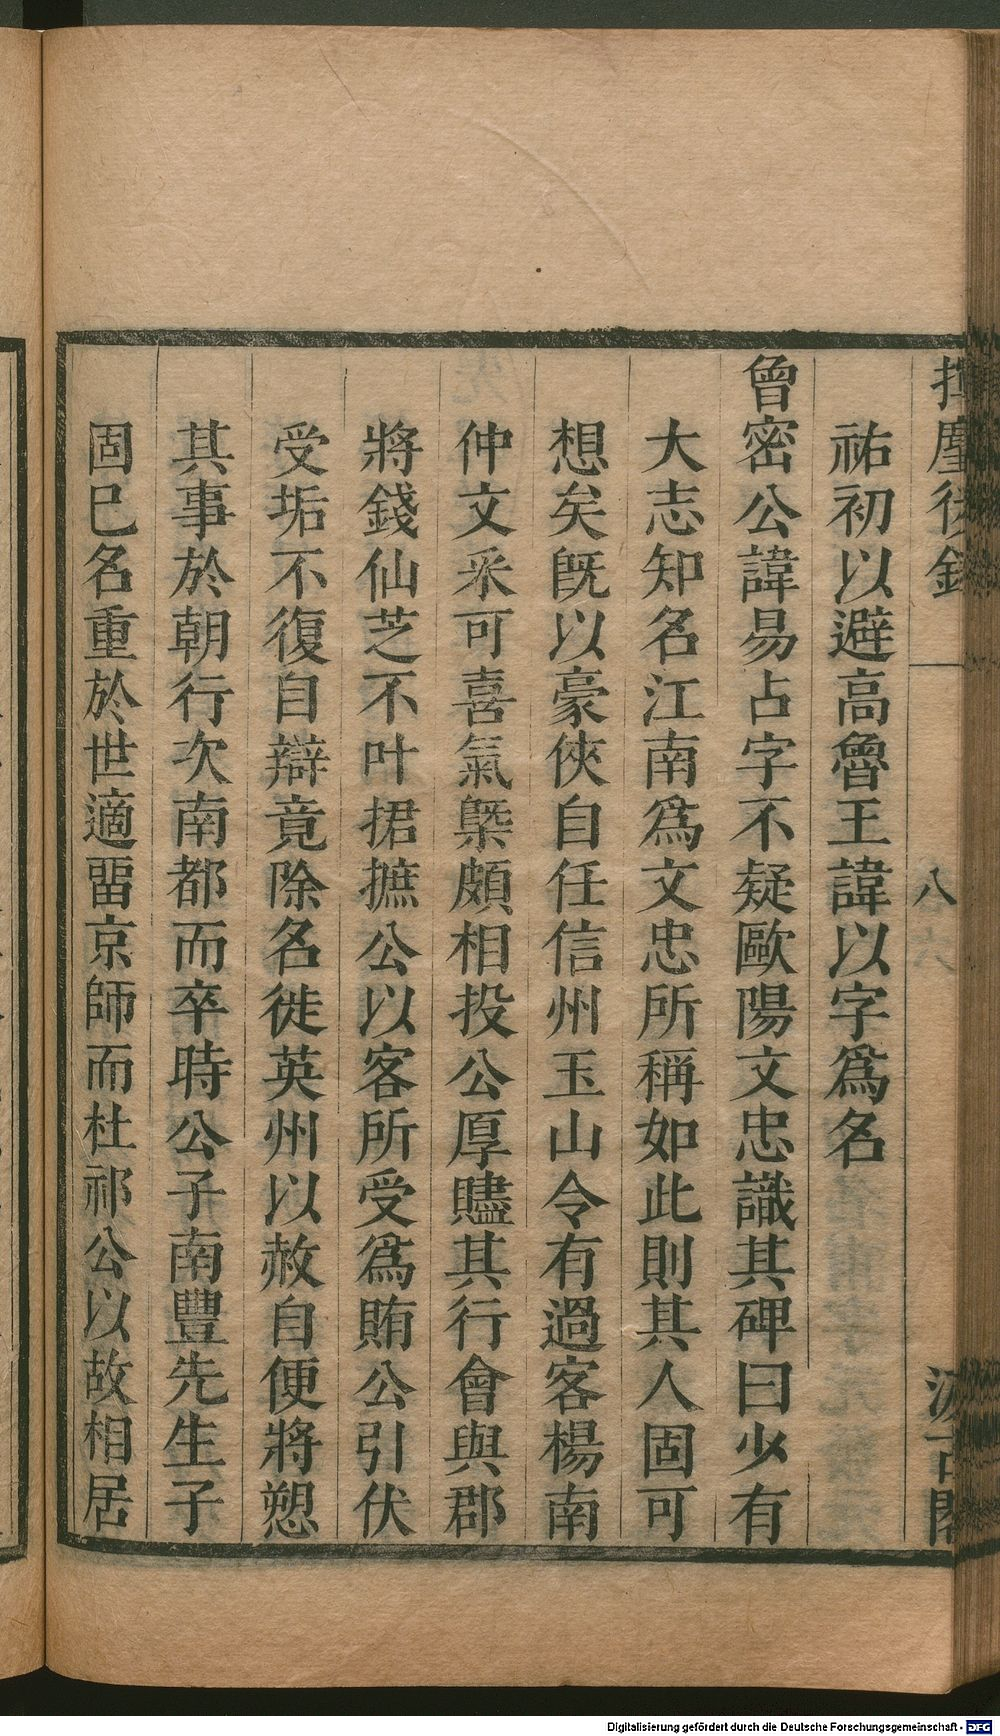 揮麈後錄
卷六
汲古閣
祐初以避高魯王諱以字爲名
曾密公諱易占字不疑歐陽文忠識其碑曰少有
大志知名江南爲文忠所稱如此則其人固可
想矣旣以豪俠自任信州玉山令有過客楊南
仲文采可喜氣槩頗相投公厚贐其行會與郡
將錢仙芝不叶捃摭公以客所受爲賄公引伏
受垢不復自辯竟除名徙英州以赦自便將愬
其事於朝行次南都而卒時公子南豐先生子
固已名重於世適畱京師而杜祁公以故相居
Digitalisierung gefördert durch die Deutsche Forschungsgemeinschaft - DFG